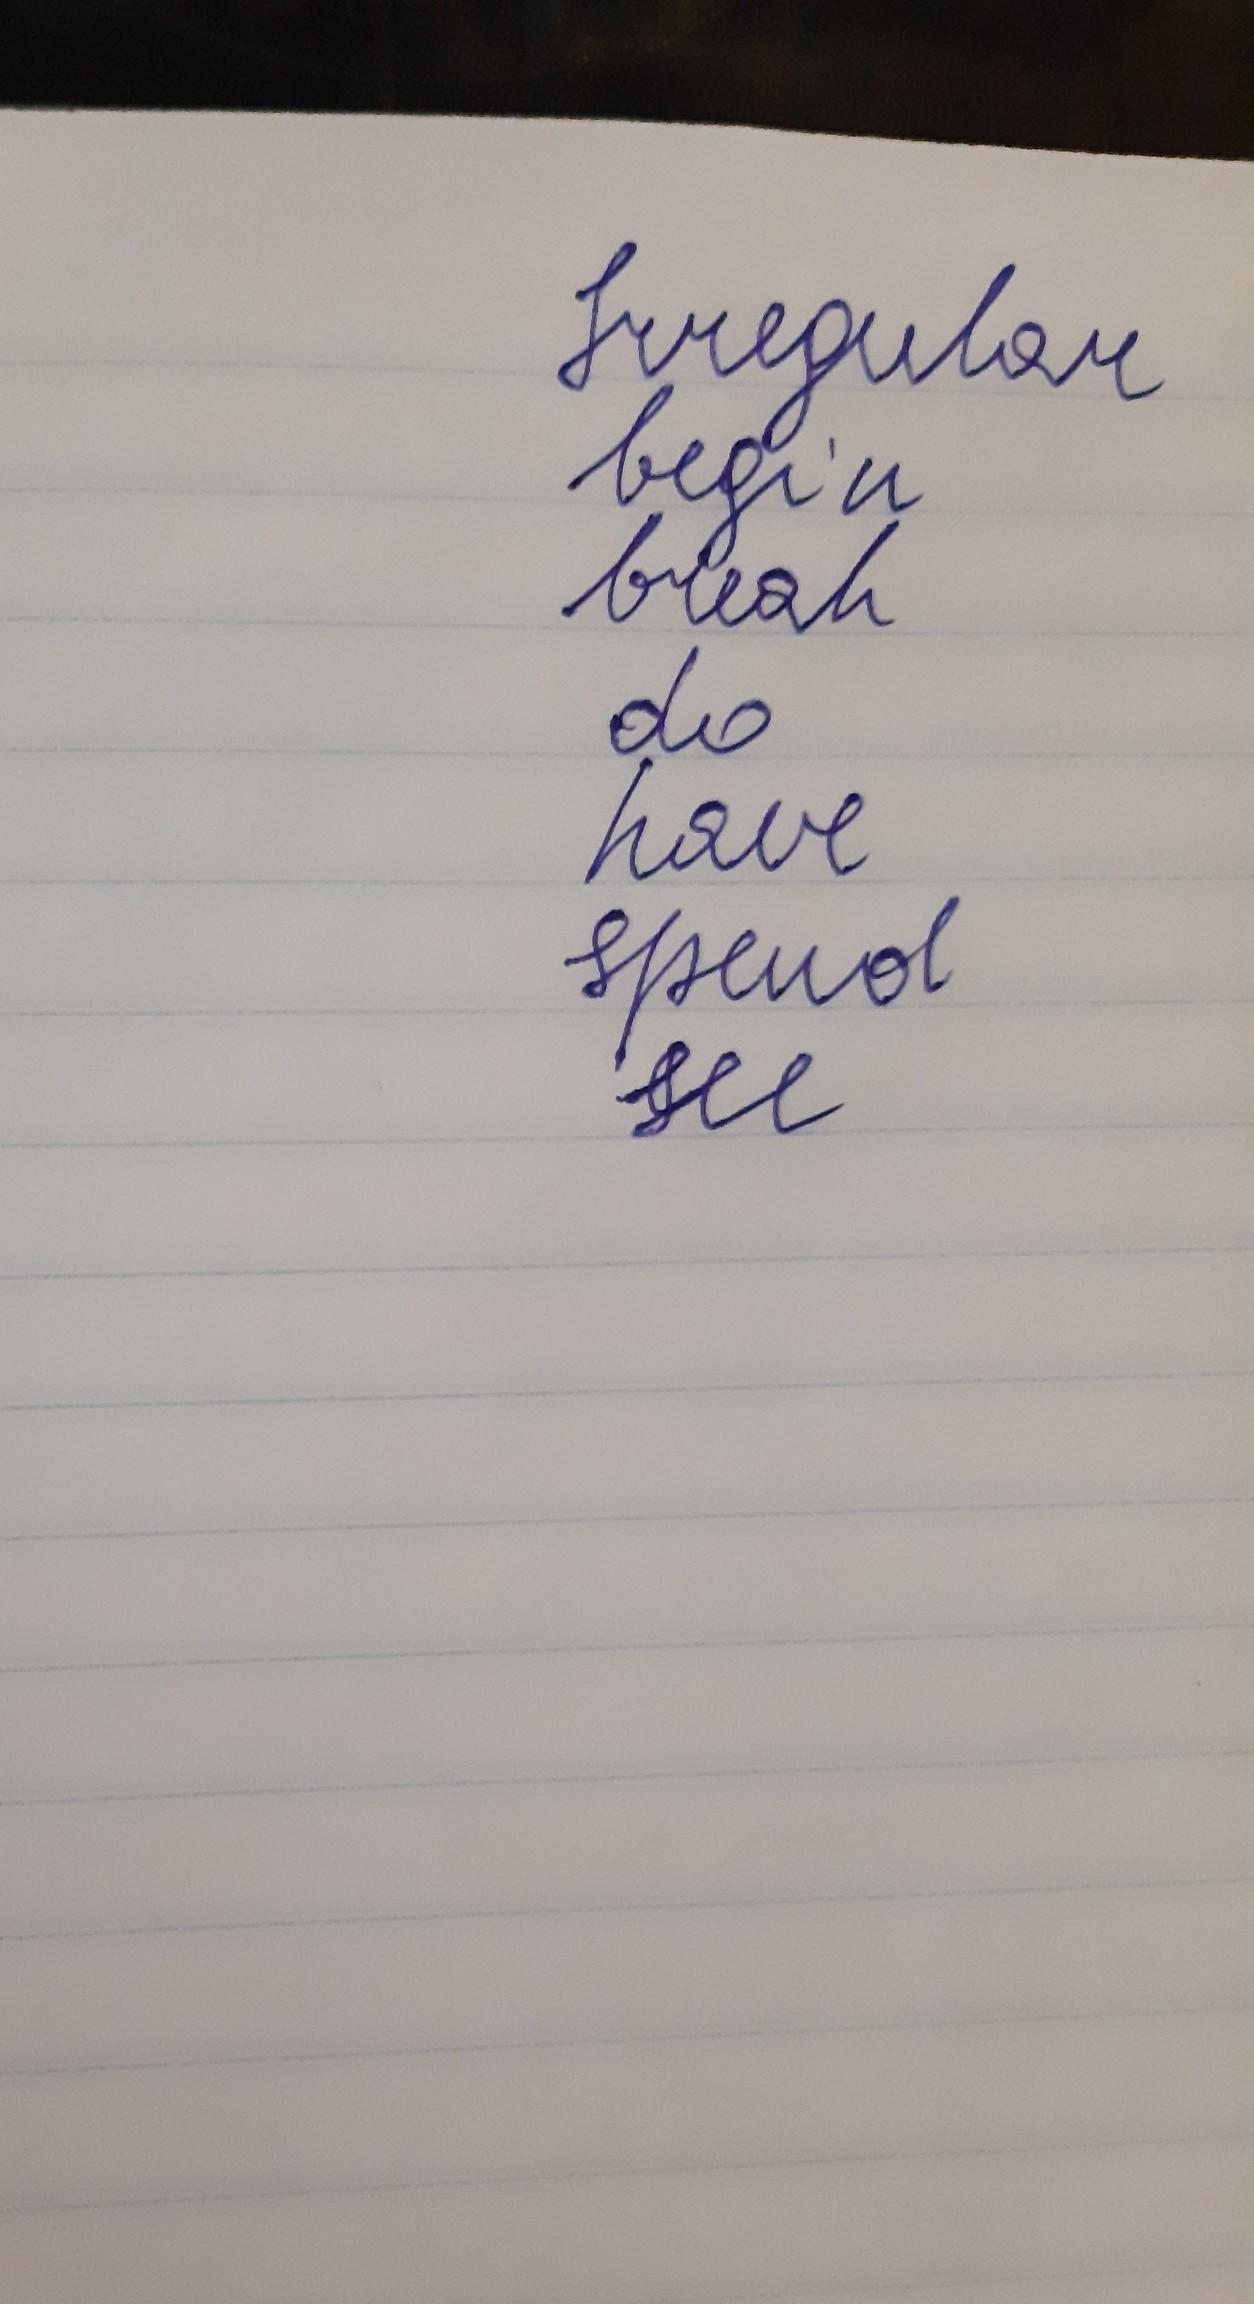 Irregular
begin
break
do
have
spend
see